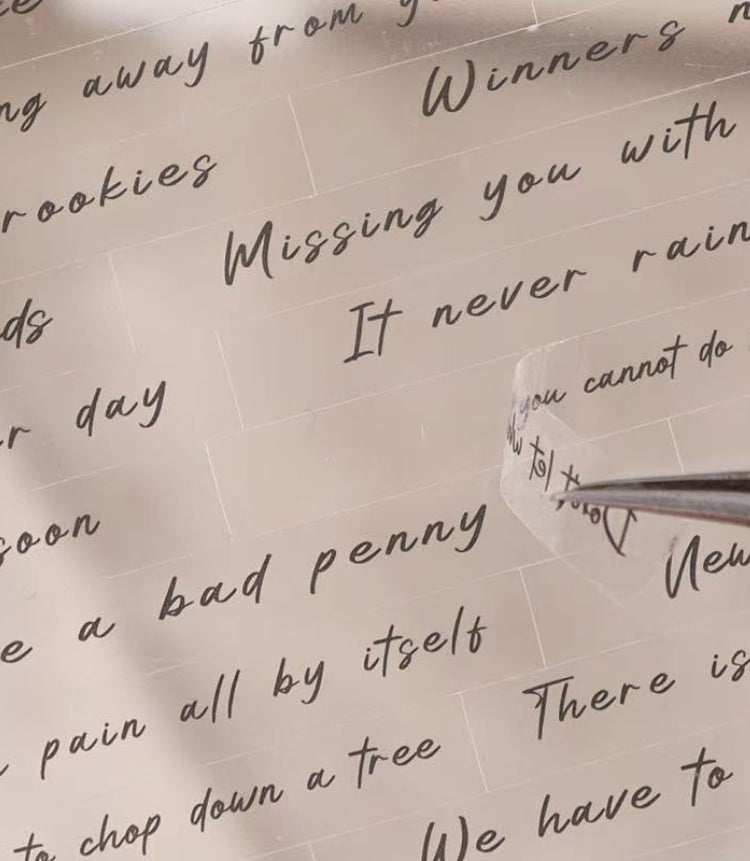 ng away from
Winners
rookies
Missing you with
ds
It never rain
r day
you cannot do
Don't let
soon
New
e a bad penny
pain all by itself
There is
to chop down a tree
We have to